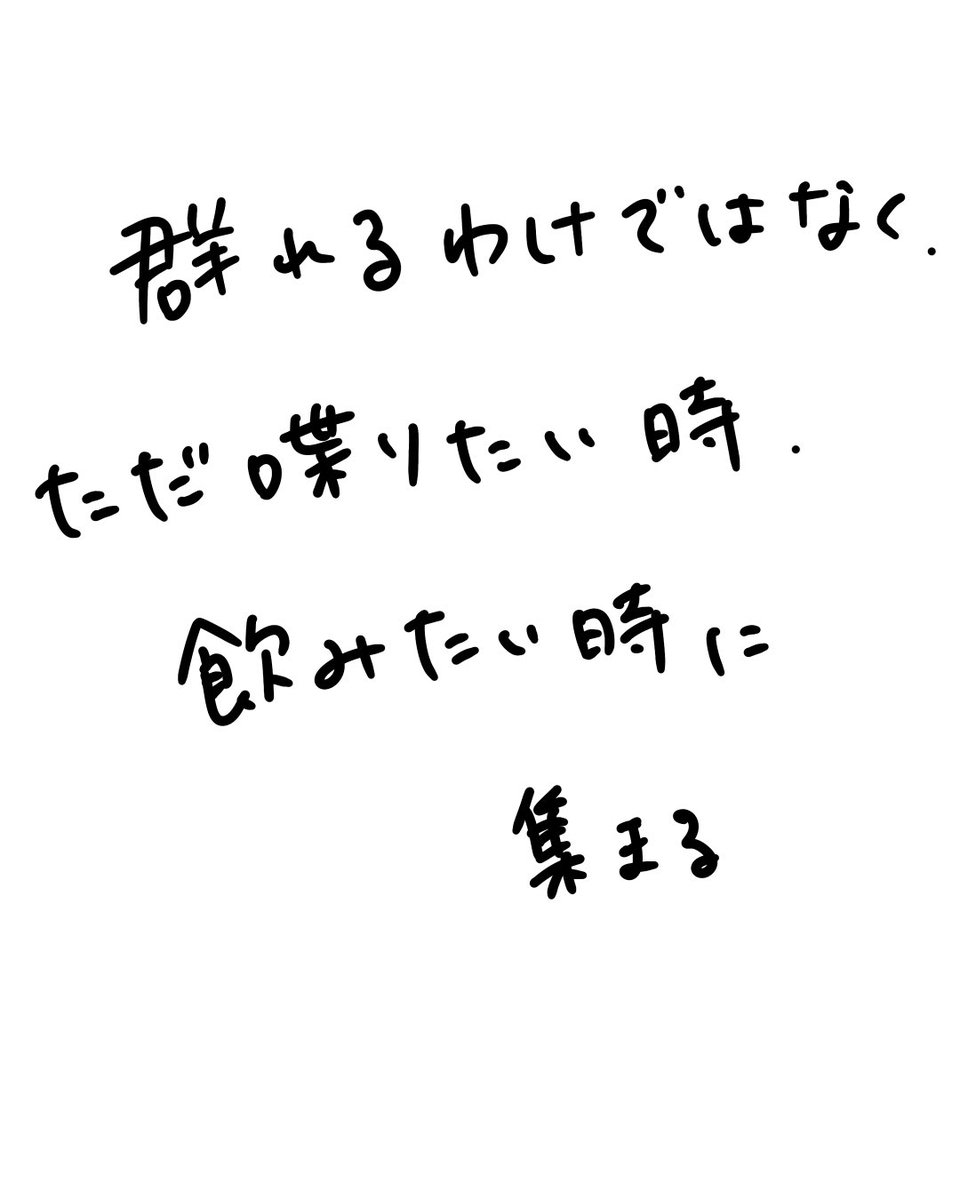 群れるわけではなく.
ただ喋りたい時.
飲みたい時に
集まる